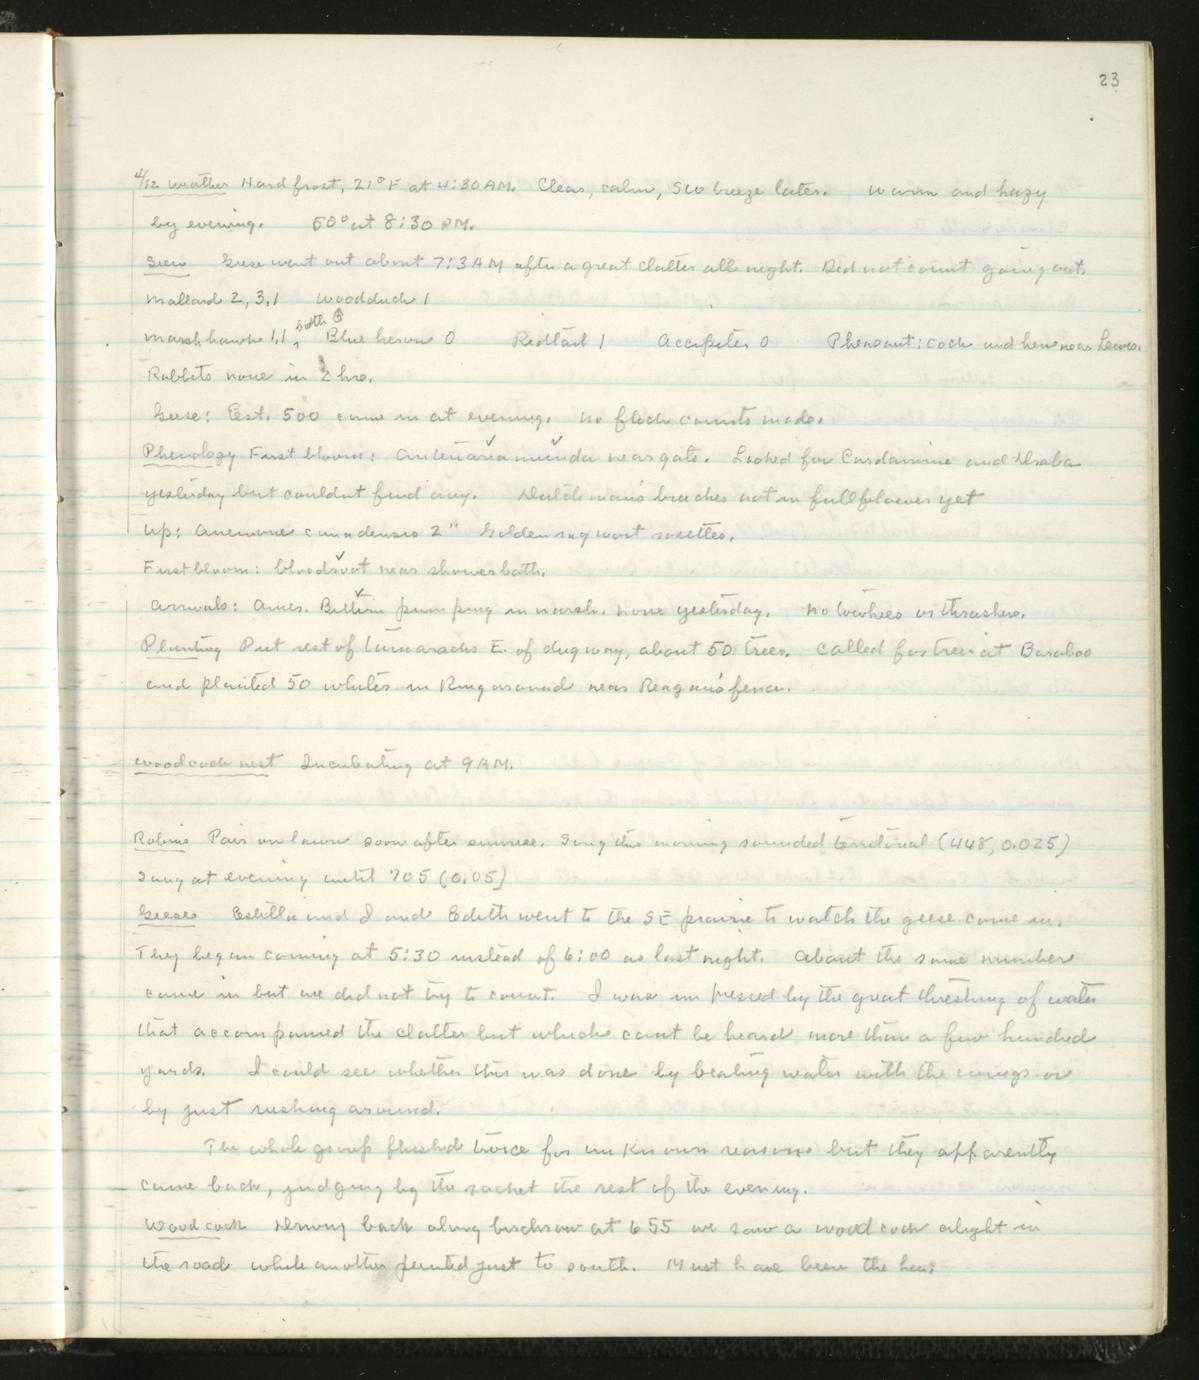 23
4/12 weather Hard frost, 21° F at 4:30 AM. Clear, calm, SW breeze later. Warm and hazy
by evening. 50° at 8:30 PM.
Seen Geese went out about 7:3 AM after a great clatter all night. Did not count going out.
Mallards 2, 3, 1 Woodduck 1
both ♂
Marsh hawk 1, 1 ^ Blue heron 0 Redtail 1 Accipiter 0 Pheasant: cock and hen near Lewis.
Rabbits none in 2 hrs.
Geese: Est. 500 came in at evening. No flock counts made.
Phenology First bloom: Antennaria near gate. Looked for Cardamine and Draba
yesterday but couldnt find any. Dutchman's breeches not in full flower yet
Up: Anemone canadensis 2" Golden ragwort rosettes.
First bloom: bloodroot near showerbath.
Arrivals: Amer. Bittern pumping in marsh. None yesterday. No towhees or thrashers.
Planting Put rest of tamaracks E. of dugway, about 50 trees. Called for trees at Baraboo
and planted 50 whites in Ring around near Reagan's fence.
Woodcock nest Incubating at 9 AM.
Robins Pair on lawn soon after sunrise. Song this morning sounded territorial (448, 0.025)
Sang at evening until 705 (0.05)
Geese Estella and I and Edith went to the SE prairie to watch the geese come in.
They began coming at 5:30 instead of 6:00 as last night. About the same number
came in but we did not try to count. I was impressed by the great threshing of water
that accompanied the clatter but which cant be heard more than a few hundred
yards. I could see whether this was done by beating water with the wings or
by just rushing around.
The whole group flushed twice for unknown reasons but they apparently
came back, judging by the racket the rest of the evening.
Woodcock Driving back along birchrow at 655 we saw a woodcock alight in
the road while another peented just to south. Must have been the hen.